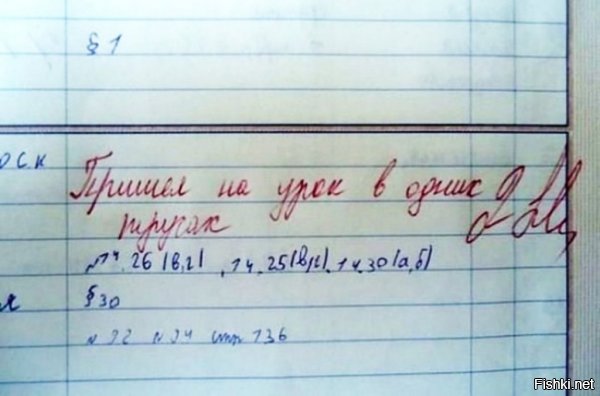 § 1
оск
Пришел на урок в одних
трусах
№14.26(в,г), 14.25(в,г), 14.30(а,б)
я
§30
стр 136
Fishki.net